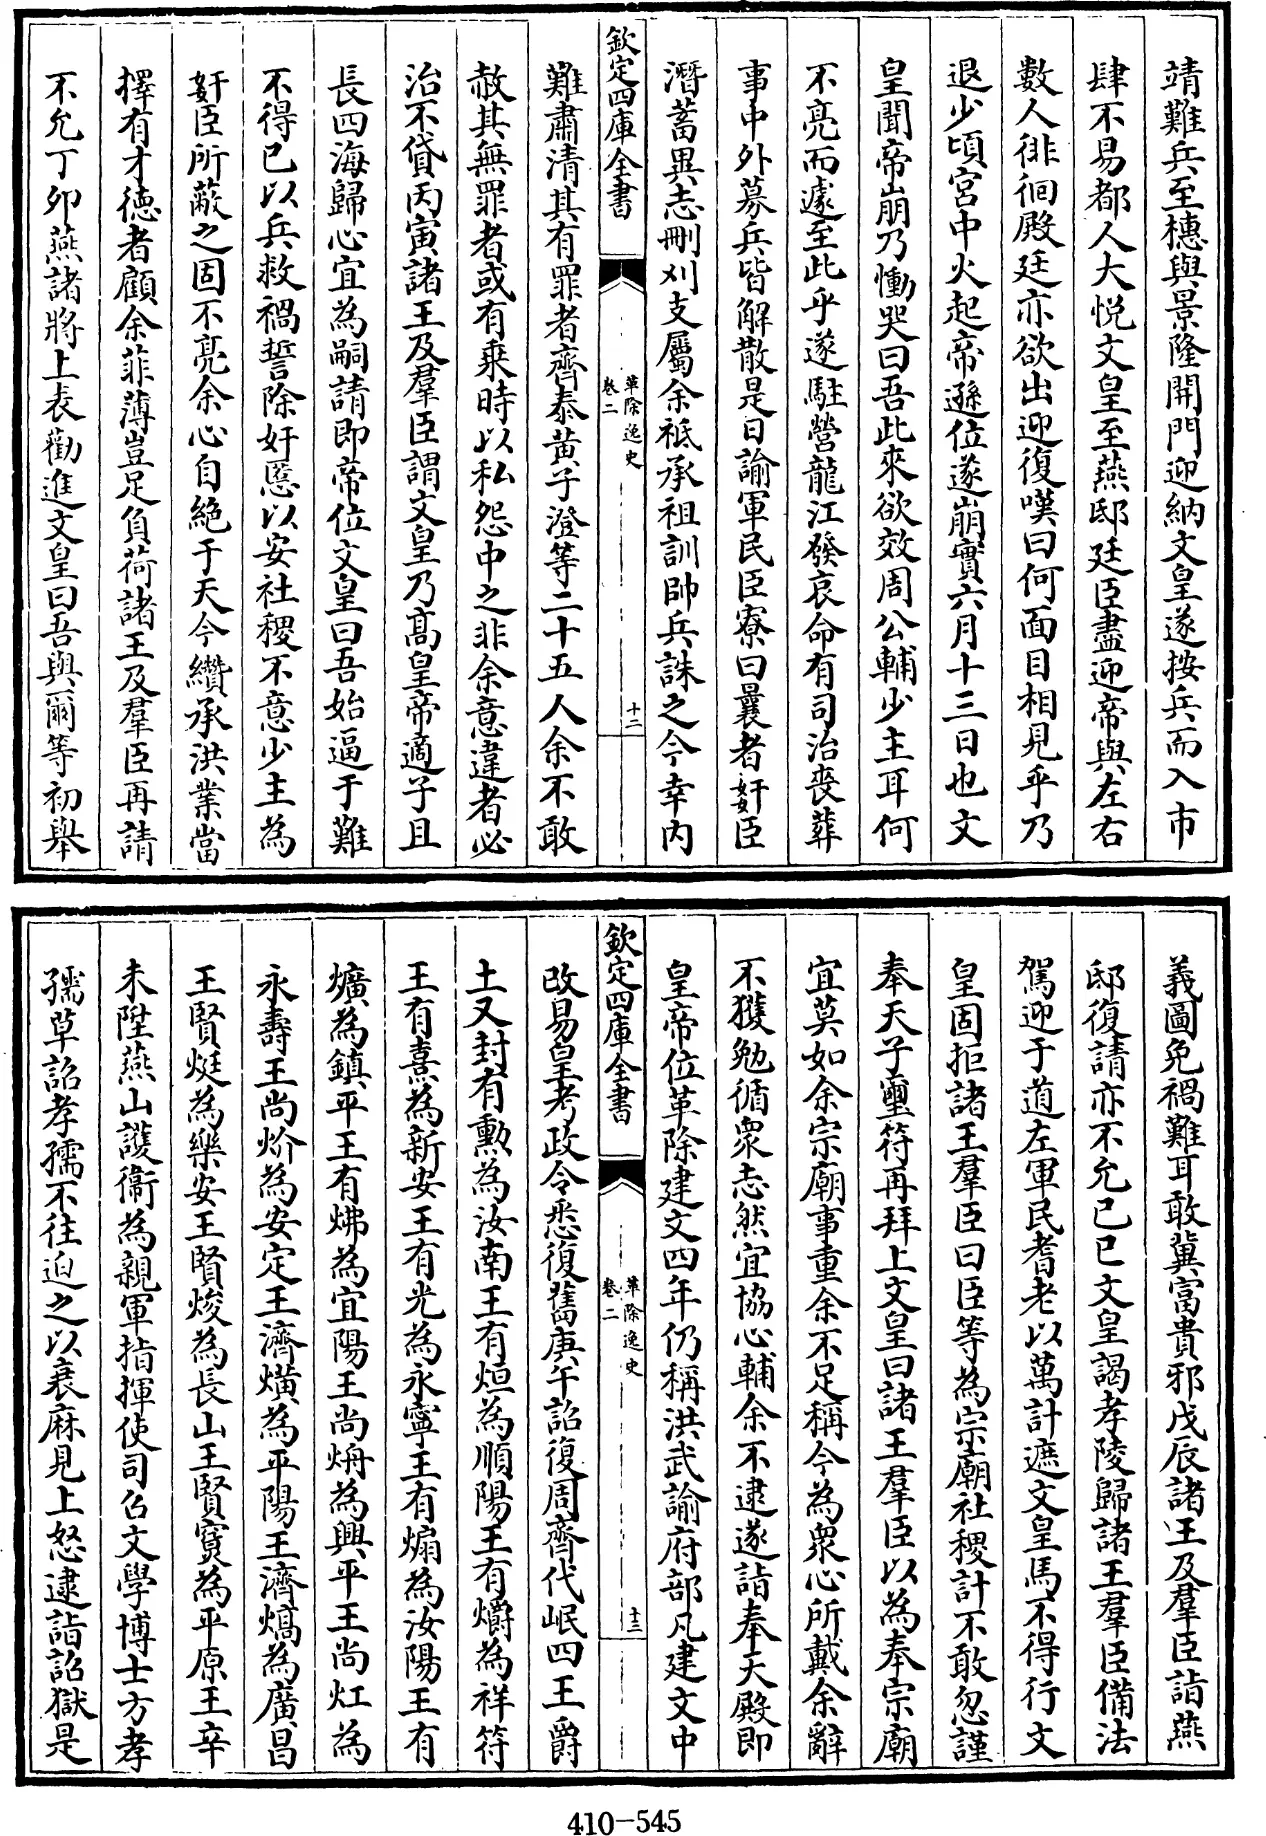 靖難兵至橞與景隆開門迎納文皇遂按兵而入市
肆不易都人大悦文皇至燕邸廷臣盡迎帝與左右
數人徘徊殿廷亦欲出迎復嘆曰何面目相見乎乃
退少頃宫中火起帝遜位遂崩實六月十三日也文
皇聞帝崩乃慟哭曰吾此來欲效周公輔少主耳何
不亮而遽至此乎遂駐營龍江發哀命有司治喪葬
事中外募兵皆解散是日諭軍民臣寮曰曩者奸臣
潛蓄異志刪刈支屬余祗承祖訓帥兵誅之今幸内
欽定四庫全書
革除逸史
卷二
十二
難肅清其有罪者齊泰黄子澄等二十五人余不敢
赦其無罪者或有乗時以私怨中之非余意違者必
治不貸丙寅諸王及羣臣謂文皇乃髙皇帝適子且
長四海歸心宜為嗣請即帝位文皇曰吾始逼于難
不得已以兵救禍誓除奸慝以安社稷不意少主為
奸臣所蔽之固不亮余心自絶于天今纘承洪業當
擇有才徳者顧余菲薄豈足負荷諸王及羣臣再請
不允丁卯燕諸將上表勸進文皇曰吾與爾等初舉
義圖免禍難耳敢冀富貴邪戊辰諸王及羣臣詣燕
邸復請亦不允己巳文皇謁孝陵歸諸王羣臣備法
駕迎于道左軍民耆老以萬計遮文皇馬不得行文
皇固拒諸王羣臣曰臣等為宗廟社稷計不敢忽謹
奉天子璽符再拜上文皇曰諸王羣臣以為奉宗廟
宜莫如余宗廟事重余不足稱今為衆心所戴余辭
不獲勉循衆志然宜協心輔余不逮遂詣奉天殿即
皇帝位革除建文四年仍稱洪武諭府部凡建文中
欽定四庫全書
革除逸史
卷二
十三
改易皇考政令悉復舊庚午詔復周齊代岷四王爵
土又封有勲為汝南王有烜為順陽王有爝為祥符
王有熹為新安王有光為永寧王有煽為汝陽王有
爌為鎮平王有炥為宜陽王尚烐為興平王尚灴為
永壽王尚炌為安定王濟熿為平陽王濟熇為廣昌
王賢烶為樂安王賢焌為長山王賢寘為平原王辛
未陞燕山護衛為親軍指揮使司召文學博士方孝
孺草詔孝孺不往迫之以衰麻見上怒逮詣詔獄是
410-545